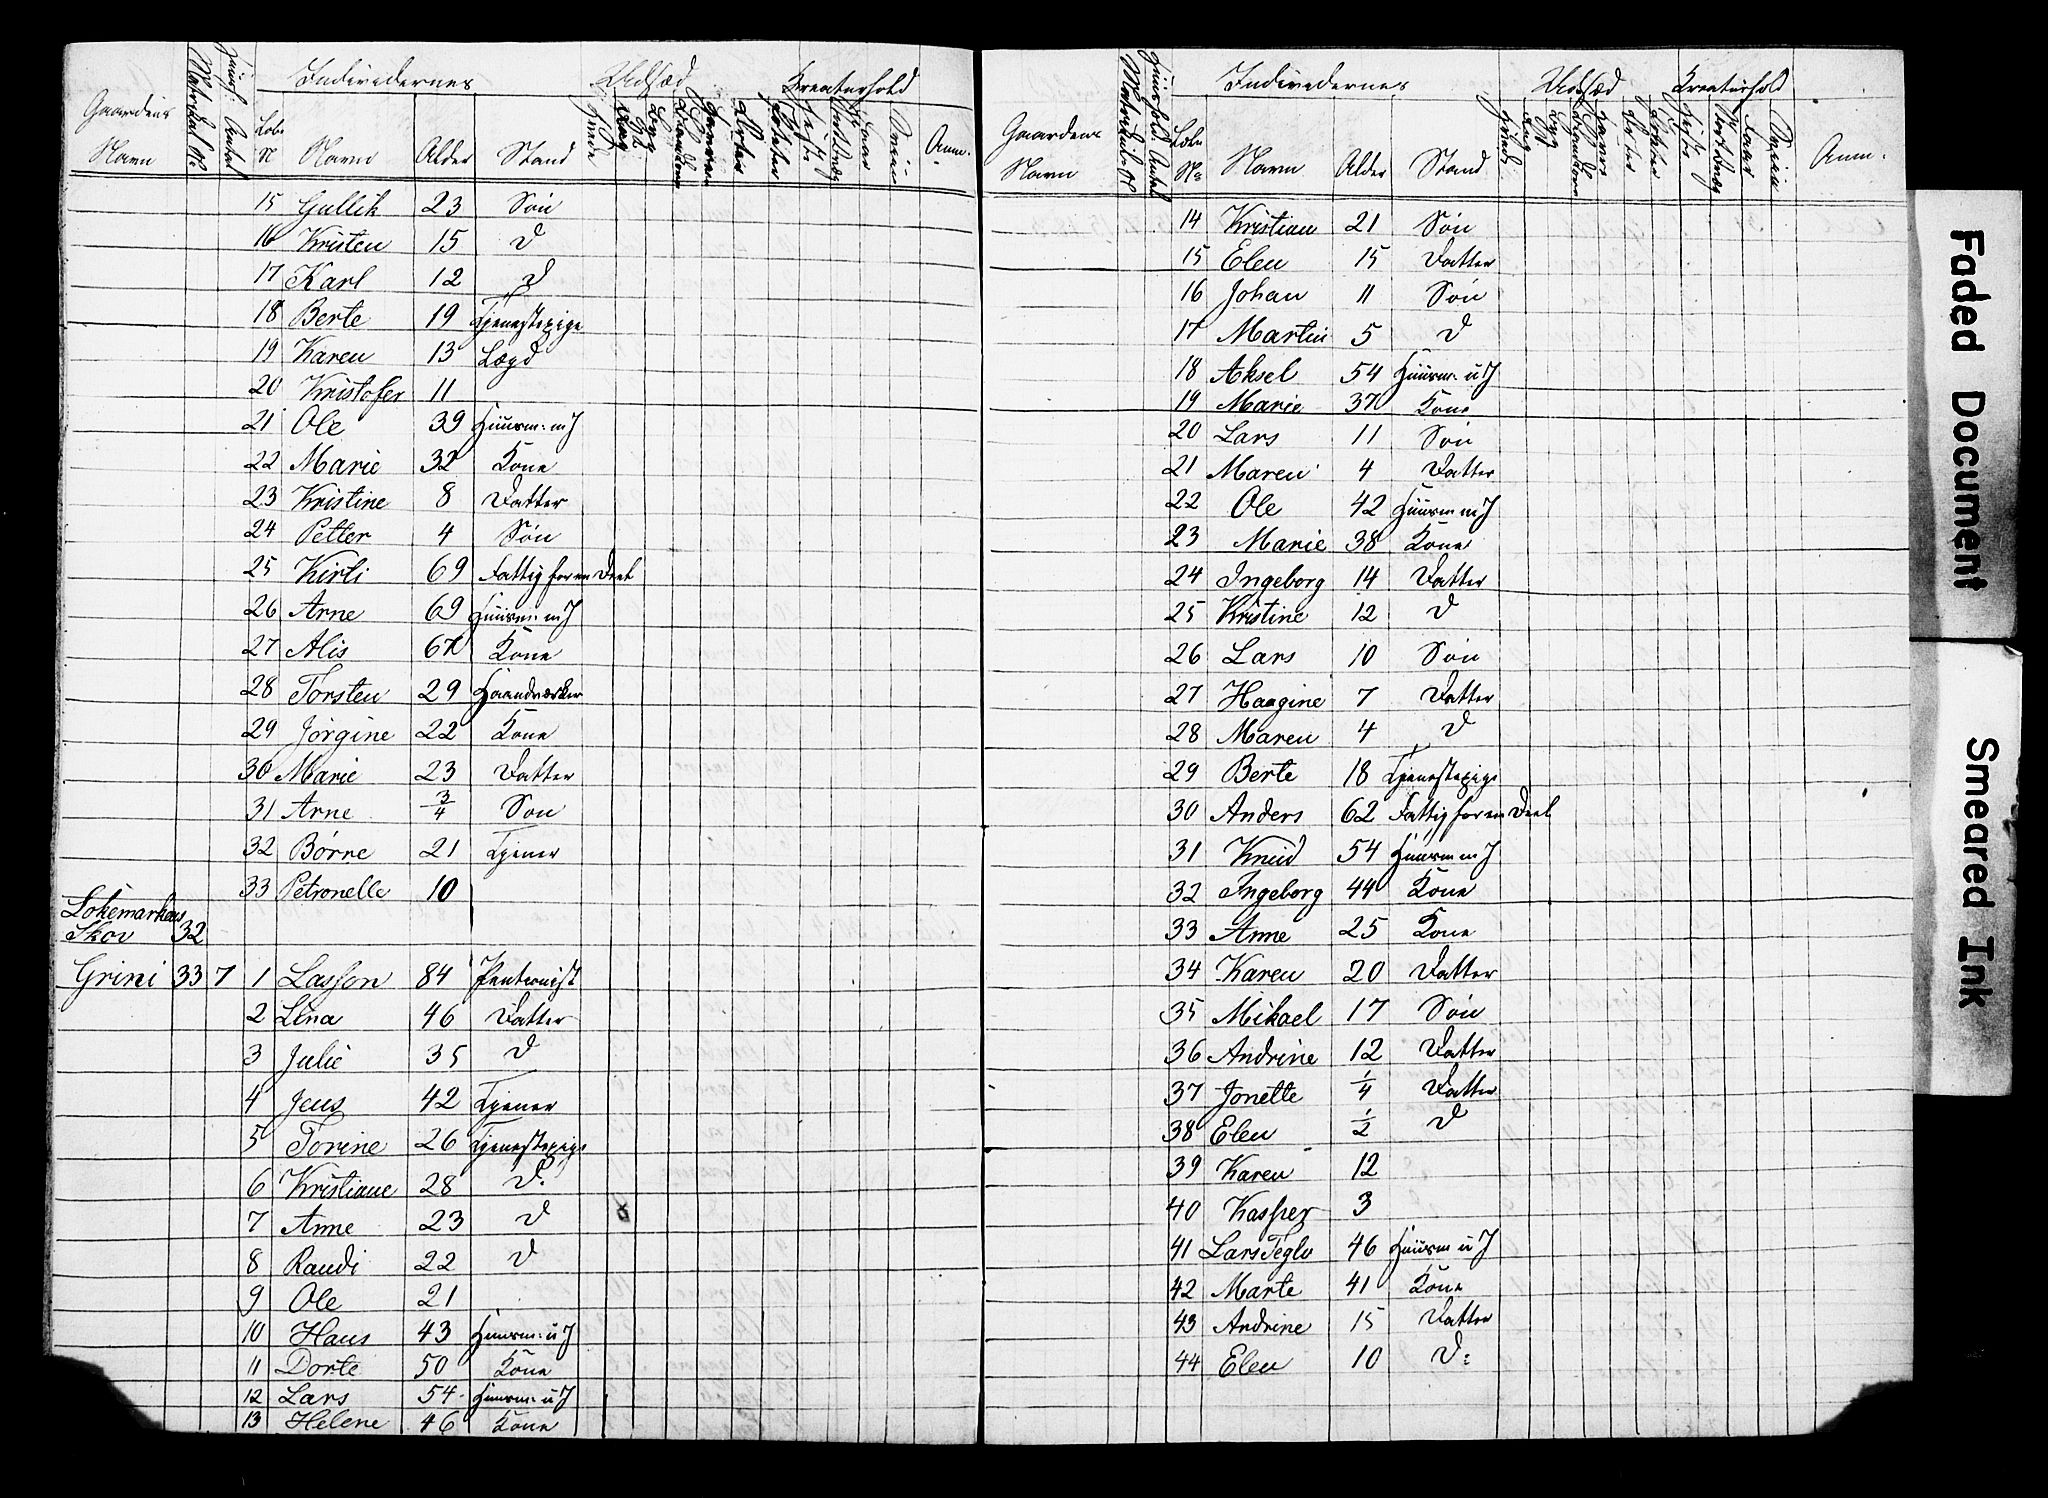 Gaardens Navn Matrikel № Huush: Antal Individernes Udsæd Kreaturhold Anm.
Løbe N Navn Alder Stand
15 Gullik 23 Søn
16 Kristen 15 D
17 Karl 12 D
18 Berte 19 Tjenestepige
19 Karen 13 Lægd
20 Kristofer 11
21 Ole 39 Huusm: m J
22 Marie 32 Kone
23 Kristine 8 Datter
24 Petter 4 Søn
25 Kirti 69 Fattig for en Deel
26 Arne 69 Huusm: m J
27 Alis 67 Kone
28 Torsten 29 Haandværker
29 Jørgine 22 Kone
30 Marie 23 Datter
31 Arne 3/4 Søn
32 Børne 21 Tjener
33 Petronelle 10
Lokemarkens
Skov 32
Grini 33 7 1 Lasson 84 Pentionist
2 Lina 46 Datter
3 Julie 35 D
4 Jens 42 Tjener
5 Torine 26 Tjenestepige
6 Kristiane 28 D.
7 Anne 23 D
8 Randi 22 D
9 Ole 21
10 Hans 43 Huusm: u J
11 Dorte 50 Kone
12 Lars 54 Huusm: u J
13 Helene 46 Kone
Gaardens Navn Matrikel № Huushold. Antal Individernes Udsæd Kreaturhold Anm.
Løbe № Navn Alder Stand
14 Kristian 21 Søn
15 Elen 15 Datter
16 Johan 11 Søn
17 Martin 5 D
18 Aksel 54 Huusm: u J
19 Marie 37 Kone
20 Lars 11 Søn
21 Maren 4 Datter
22 Ole 42 Huusm m J
23 Marie 38 Kone
24 Ingeborg 14 Datter
25 Kristine 12 D
26 Lars 10 Søn
27 Haagine 7 Datter
28 Maren 4 D
29 Berte 18 Tjenestepige
30 Anders 62 Fattig for en Deel
31 Knud 54 Huusm m J
32 Ingeborg 44 Kone
33 Anne 25 Kone
34 Karen 20 Datter
35 Mikael 17 Søn
36 Andrine 12 Datter
37 Jonette 1/4 Datter
38 Elen 1/2 D
39 Karen 12
40 Kasper 3
41 Lars Teglv 46 Huusm u J
42 Marte 41 Kone
43 Andrine 15 Datter
44 Elen 10 D:
Faded Document
Smeared Ink